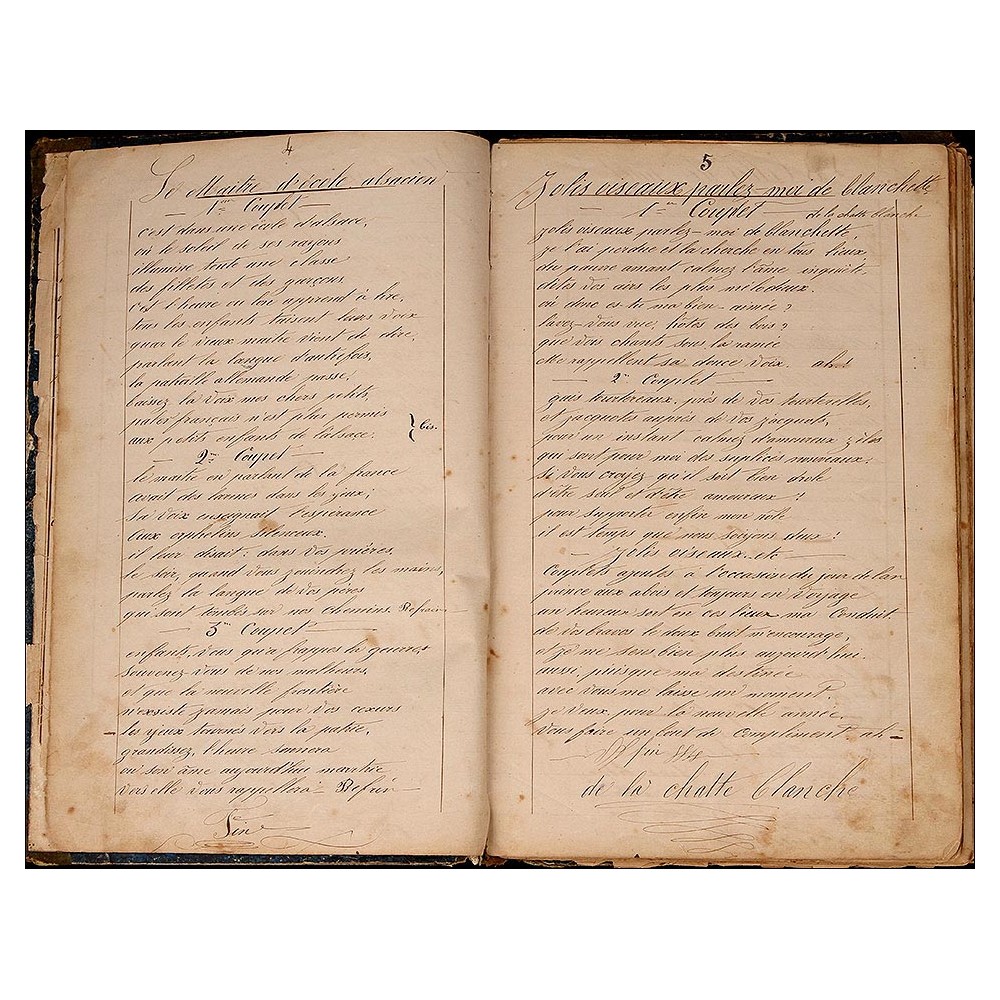 4
Le Maître d'école alsacien
1er Couplet
c'est dans une école d'alsace,
où le soleil de ses rayons
illumine toute une classe
des fillettes et des garçons
c'est l'heure ou l'on apprend à lire,
tous les enfants taisent leurs voix
quar le vieux maître vient de dire,
parlant la langue d'autrefois,
la patrouille allemande passe,
baissez la voix mes chers petits,
parler français n'est plus permis
aux petits enfants de l'alsace. } bis.
2me Couplet
le maître en parlant de la france
avait des larmes dans les yeux;
Sa voix enseignait l'espérance
aux orphelins silencieux.
il leur disait: dans vos prières,
le soir, quand vous joindrez les mains,
parlez la langue de vos pères
qui sont tombés sur nos chemins. Refrain
3me Couplet
enfants, vous qu'a frappés la guerre,
Souvenez-vous de nos malheurs,
et que la nouvelle frontière
n'exsiste jamais pour vos cœurs
les yeux tournés vers la patrie,
grandissez, l'heure sonnera
où son âme aujourd'hui meurtrie
vers elle vous rappellera Refrain
Fin
5
Jolis oiseaux parlez-moi de blanchette
1er Couplet de la chatte blanche
jolis oiseaux parlez-moi de blanchette,
je l'ai perdue et la cherche en tous lieux,
du pauvre amant calmez l'âme inquiète
dites vos airs les plus mélodieux.
où donc es-tu ma bien-aimée?
l'avez-vous vue, hôtes des bois?
que vos chants sous la ramée
me rappellent sa douce voix. ah
2me Couplet
gais tourtereaux, près de vos tourterelles,
et jacquotes auprès de vos jacquots,
pour un instant calmez d'amoureux
qui sont pour moi des suplices nouveaux.
Si vous croyez qu'il soit bien drole
d'être seul et d'être amoureux!
pour supporter enfin mon rôle
il est temps que nous soyons deux!
Jolis oiseaux etc
Couplets ajoutés à l'occasion du jour de l'an
prince aux abois et toujours en voyage
un heureux sort en ces lieux ma Conduit.
de vos bravos le doux bruit m'encourage,
et je me sens bien plus aujourd'hui.
aussi, puisque ma destinée
avec vous me laisse un moment,
je veux pour la nouvelle année,
vous faire un bout de Compliment ah
fin
de la chatte blanche